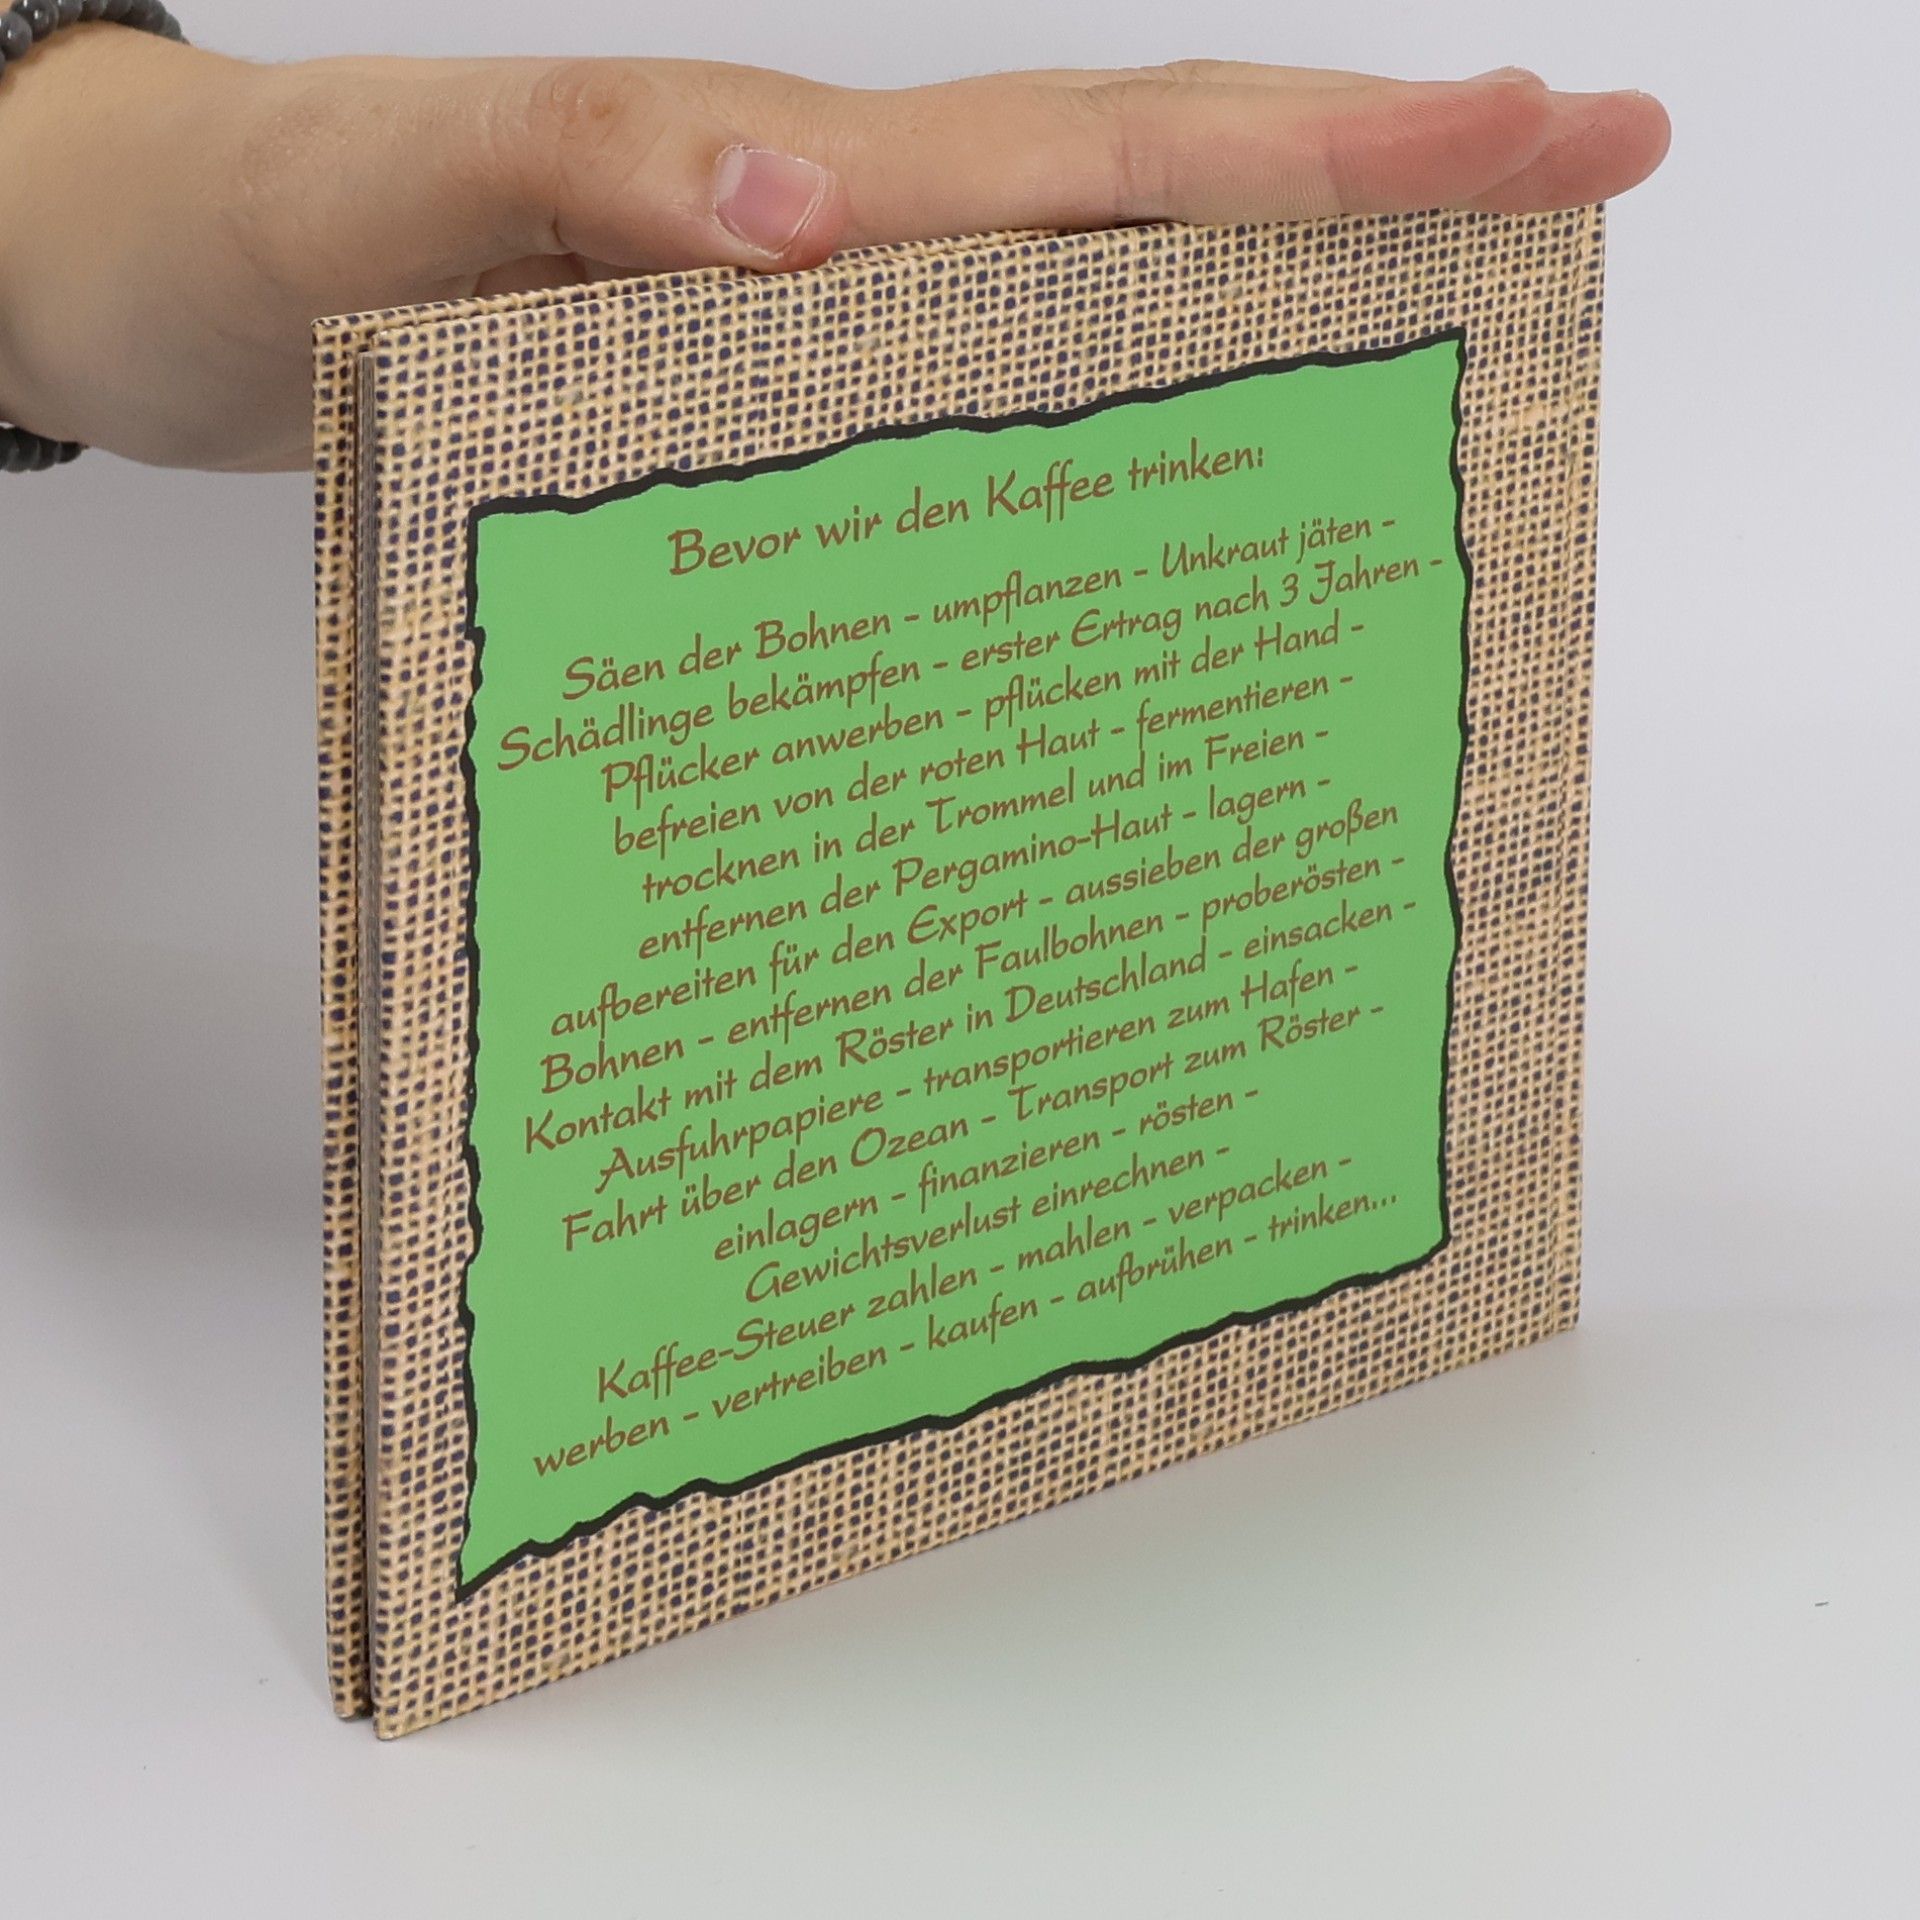 Bevor wir den Kaffee trinken:
Säen der Bohnen - umpflanzen - Unkraut jäten -
Schädlinge bekämpfen - erster Ertrag nach 3 Jahren -
Pflücker anwerben - pflücken mit der Hand -
befreien von der roten Haut - fermentieren -
trocknen in der Trommel und im Freien -
entfernen der Pergamino-Haut - lagern -
aufbereiten für den Export - aussieben der großen
Bohnen - entfernen der Faulbohnen - proberösten -
Kontakt mit dem Röster in Deutschland - einsacken -
Ausfuhrpapiere - transportieren zum Hafen -
Fahrt über den Ozean - Transport zum Röster -
einlagern - finanzieren - rösten -
Gewichtsverlust einrechnen -
Kaffee-Steuer zahlen - mahlen - verpacken -
werben - vertreiben - kaufen - aufbrühen - trinken...